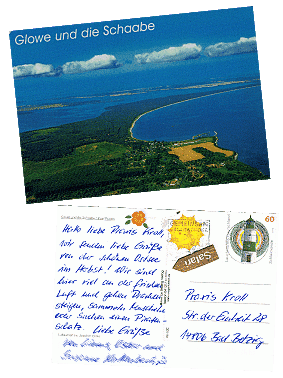 Glowe und die Schaabe
Hallo liebe Praxis Kroll,
wir senden liebe Grüße
von der schönen Ostsee
im Herbst! Wir sind
hier viel an der frischen
Luft und gehen Drachen
steigen, sammeln Muscheln
oder suchen einen Piraten-
schatz. Liebe Grüße
von
und
Susanne
Safari
60
Praxis Kroll
Str. der Einheit 28
14806 Bad Belzig